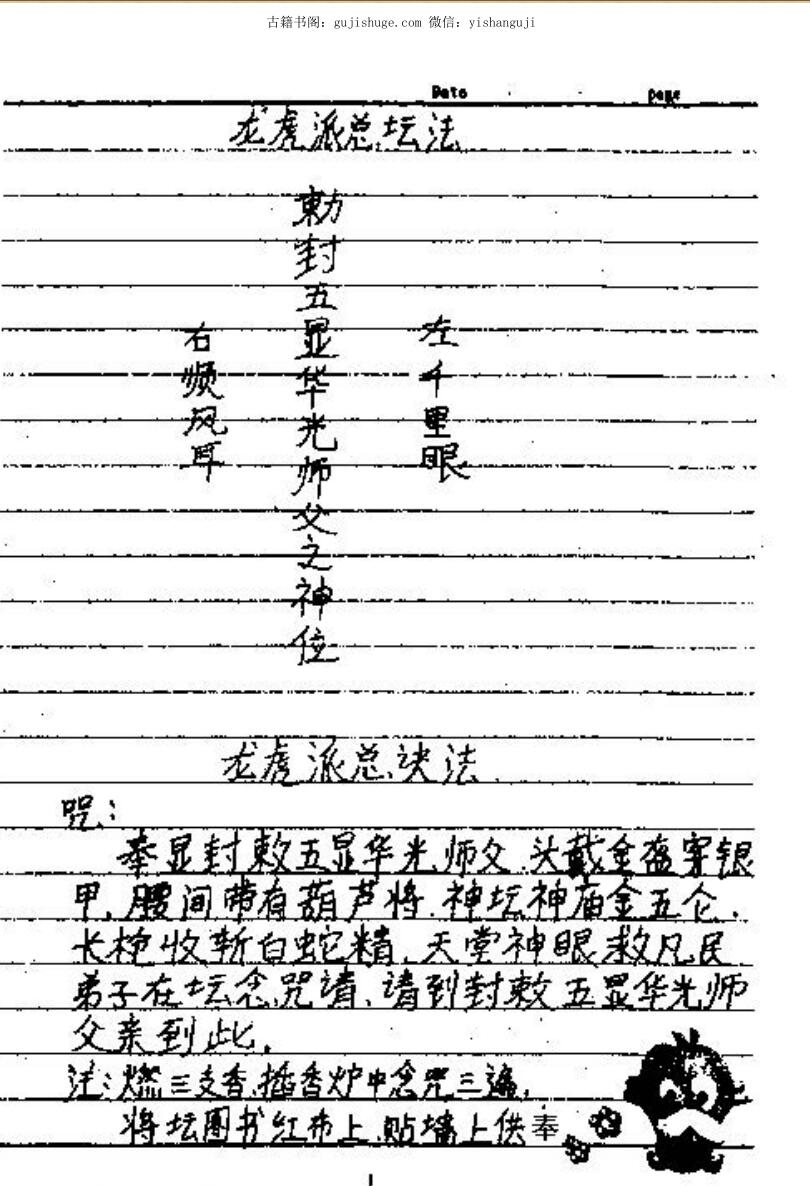 古籍书阁：gujishuge.com 微信：yishanguji
Date page
龙虎派总坛法
左千里眼
敕封五显华光师父之神位
右顺风耳
龙虎派总诀法
咒：
奉显封敕五显华光师父.头戴金盔穿银
甲,腰间带有葫芦将.神坛神庙金五仑.
长枪收斩白蛇精,天堂神眼救凡民
弟子在坛念咒请、请到封敕五显华光师
父亲到此.
注:燃三支香.插香炉中念咒三遍,
将坛图书红布上.贴墙上供奉
1